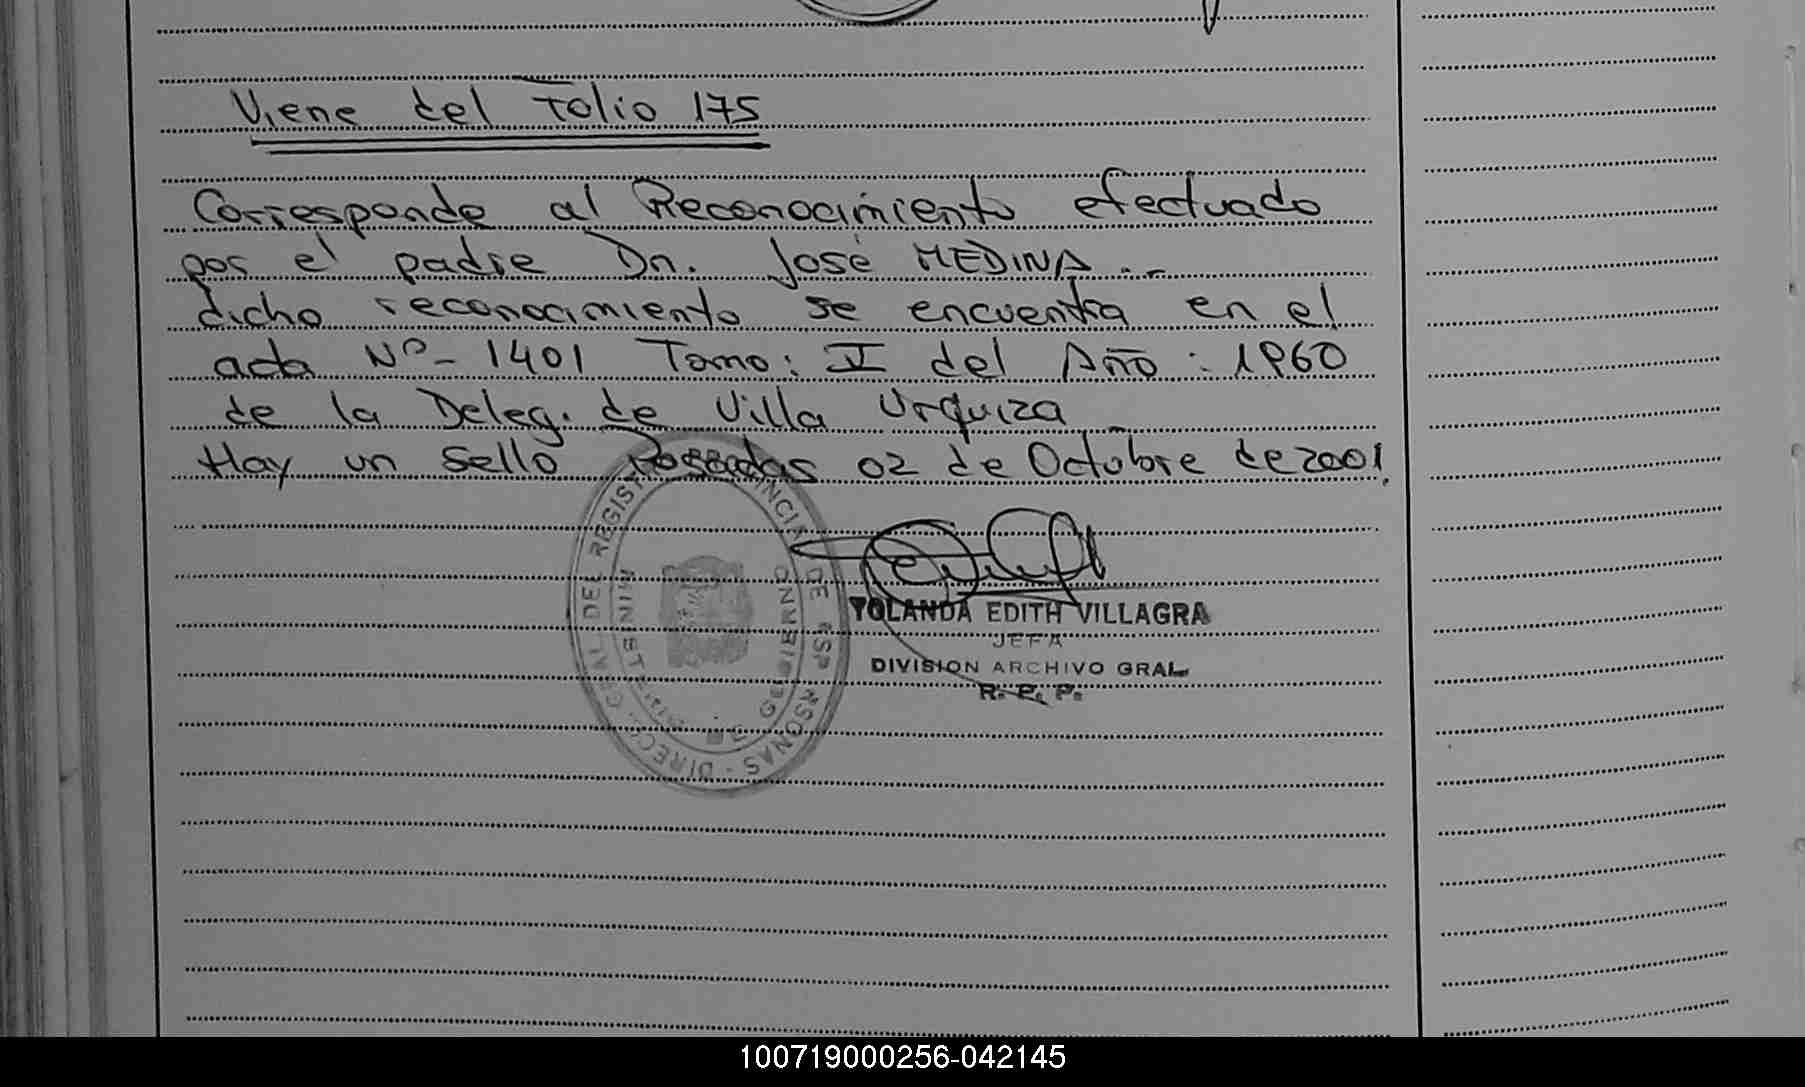 Viene del Folio 175
Corresponde al Reconocimiento efectuado
por el padre Dn. José MEDINA..-
dicho reconocimiento se encuentra en el
acta Nº- 1401 Tomo: V del Año: 1960
de la Deleg. de Villa Urquiza
Hay un sello Posadas 02 de Octubre de 2001.
YOLANDA EDITH VILLAGRA
JEFA
DIVISION ARCHIVO GRAL.
R. P. P.
DIRECC. GRAL DEL REGIST PROVINCIAL DE LAS PERSONAS -
MINISTERIO GOBIERNO
100719000256-042145